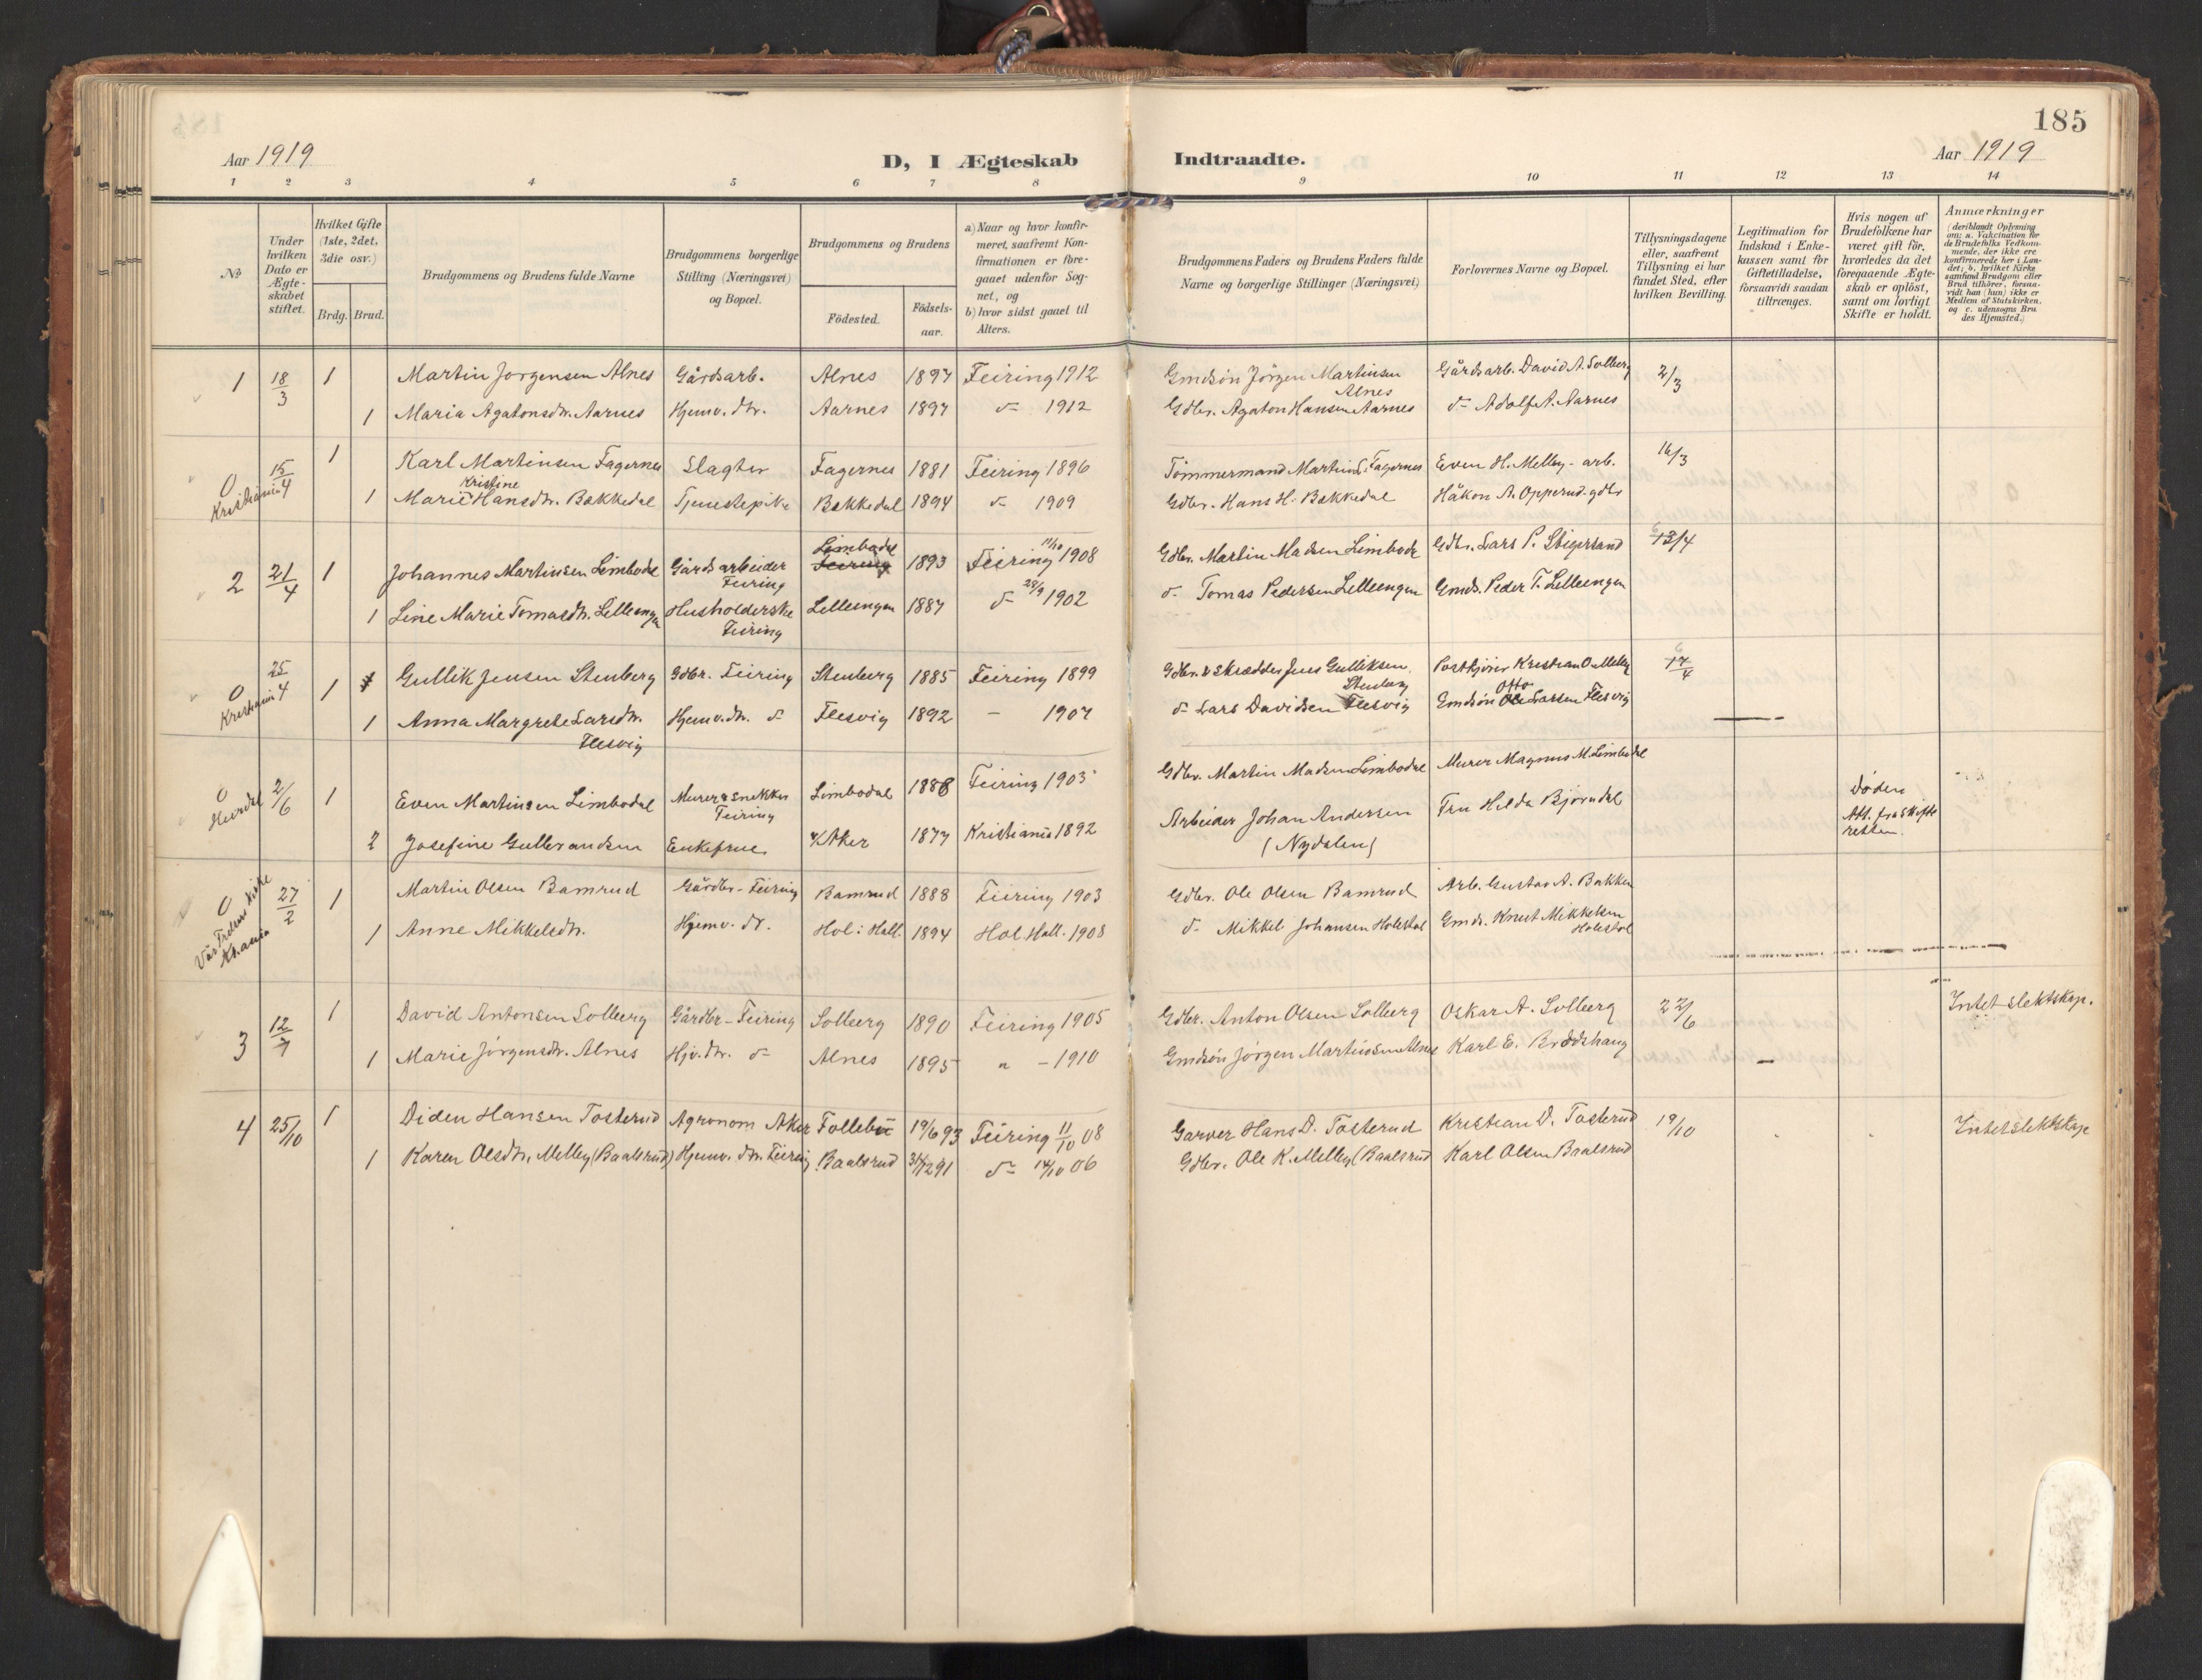 185
Aar 1919
D, I Ægteskab Indtraadte.
Aar 1919
1 2 3 4 5 6 7 8 9 10 11 12 13 14
No
Under hvilken Dato er Ægte-skabet stiftet.
Hvilket Gifte (1ste, 2det, 3die osv.)
Brdg. Brud.
Brudgommens og Brudens fulde Navne
Brudgommens borgerlige Stilling (Næringsvei) og Bopæl.
Brudgommens og Brudens
Födested.
Födsels-aar.
a) Naar og hvor konfir-meret, saafremt Kon-firmationen er fore-gaaet udenfor Sog-net, og
b) hvor sidst gaaet til Alters.
Brudgommens Faders og Brudens Faders fulde Navne og borgerlige Stillinger (Næringsvei)
Forlovernes Navne og Bopæl.
Tillysningsdagene eller, saafremt Tillysning ei har fundet Sted, efter hvilken Bevilling.
Legitimation for Indskud i Enke-kassen samt for Giftetilladelse, forsaavidt saadan tiltrænges.
Hvis nogen af Brudefolkene har været gift för, hvorledes da det foregaaende Ægte-skab er oplöst, samt om lovligt Skifte er holdt.
Anmærkninger (deriblandt Oplysning om: a. Vakcination for de Brudefolks Vedkom-mende, der ikke ere konfirmerede her i Lan-det; b. hvilket Kirke samfund Brudgom eller Brud tilhörer, forsaa-vidt han (hun) ikke er Medlem af Statskirken, og c. udensogns Bru des Hjemsted.)
1 18/3 1 Martin Jørgensen Alnes Gårdsarb. Alnes 1897 Feiring 1912 Gmdsön Jörgen Martinsen Alnes Gårdsarb. David A. Solberg 2/3
1 Maria Agatonsdtr. Aarnes Hjemv. dtr. Aarnes 1897 d= 1912 Gdbr. Agaton Hansen Aarnes d= Adolf A. Aarnes
0 Kristiania 15/4 1 Karl Martinsen Fagernes Slagter Fagernes 1881 Feiring 1896 Tömmermand Martin L. Fagernes Even H. Melby - arb. 16/3
1 Marie Kristine Hansdtr. Bækkedal Tjenestepike Bækkedal 1894 d= 1909 Gdbr. Hans H. Bækkedal Håkon A. Opperud - gdbr
2 21/4 1 Johannes Martinsen Limbodal Gårdsarbeider Feiring Limbodal Feiring 1893 Feiring 11/10 1908 Gdbr. Martin Madsen Limbodal Gdbr. Lars P. Stigersand 13/4
1 Line Marie Tomasdtr. Lilleengen Husholderske Feiring Lilleengen 1887 d= 28/9 1902 d= Tomas Pedersen Lilleengen Gmds. Peder T. Lilleengen
0 Kristiania 25/4 1 Gullik Jensen Stenberg Gdbr. Feiring Stenberg 1885 Feiring 1899 Gdbr. & Skrædder Jens Gulliksen Stenberg Postkjører Kristian O. Melby 17/4
1 Anna Margrete Larsdtr. Flesvig Hjemv. dtr. d= Flesvig 1892 - 1907 d= Lars Davidsen Flesvig Gmdsön Otto Larsen Flesvig
0 Hurdal 2/6 1 Even Martinsen Limbodal Murer & snekker Feiring Limbodal 1888 Feiring 1903 Gdbr. Martin Madsen Limbodal Murer Magnus M. Limbodal Døden
2 Josefine Gulbrandsen Enkefrue V. Aker 1877 Kristiania 1892 Arbeider Johan Andersen (Nydalen) Fru Hilda Bjørndal Att. fra Skifteretten.
0 Vår Frelsers kirke Kr.ania 27/2 1 Martin Olsen Bamrud Gårdbr - Feiring Bamrud 1888 Feiring 1903 Gdbr. Ole Olsen Bamrud Arb. Gustav A. Bakken
1 Anne Mikkelsdtr. Hjemv. dr. Hol i Hall. 1894 Hol Hall. 1908 d= Mikkel Johansen Holestøl Gmds. Knut Mikkelsen Holestøl
3 12/7 1 David Antonsen Solberg Gårdbr - Feiring Solberg 1890 Feiring 1905 Gdbr. Anton Olsen Solberg Oskar A. Solberg 22/6 Intet slektskap.
1 Marie Jörgensdtr. Alnes Hjv. dtr. d= Alnes 1895 " - 1910 Gmdsön Jörgen Martinsen Alnes Karl E. Brødshaug
4 25/10 1 Diden Hansen Tosterud Agronom Aker Follebu 19/6 93 Feiring 11/10 08 Garver Hans D. Tosterud Kristian D. Tosterud 19/10 Intet slektskap
1 Karen Olsdtr. Melby (Baalsrud) Hjemv. dtr. Feiring Baalsrud 31/12 91 d= 14/10 06 Gdbr. Ole K. Melby (Baalsrud Karl Olsen Baalsrud